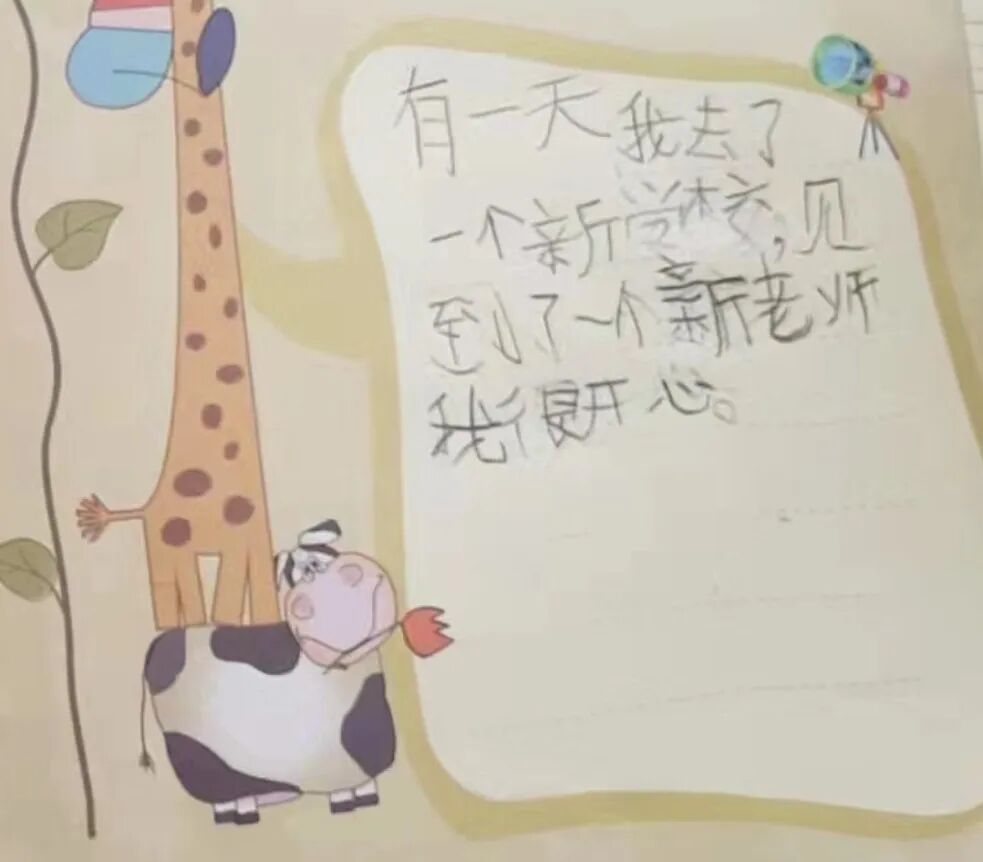 有一天我去了
一个新学校,见
到了一个新老师
我很开心。